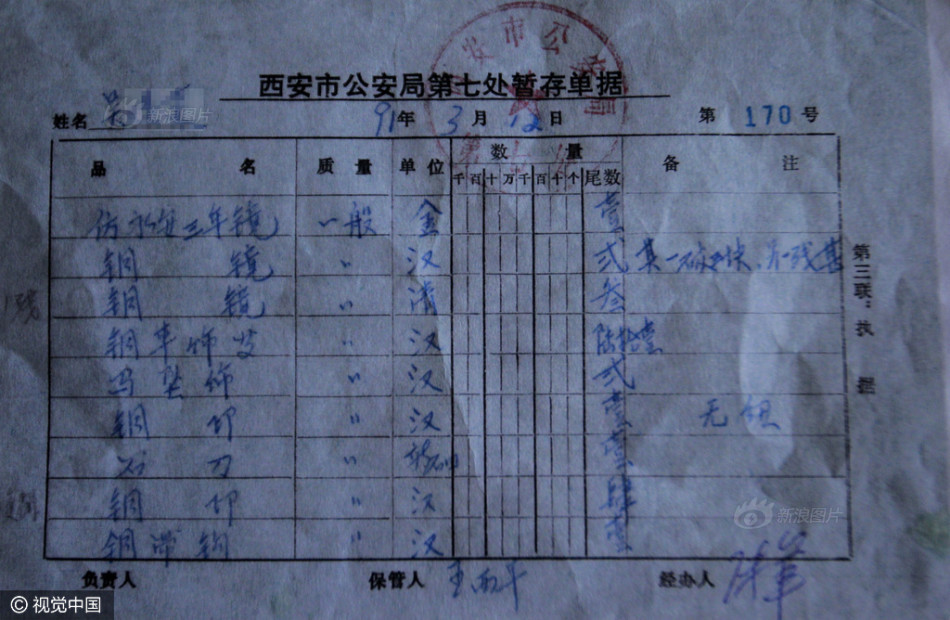 西安市公安局
西安市公安局第七处暂存单据
新浪图片
姓名 吴 91年 3月 12日 第 170 号
品名 质量 单位 数量 备注
千百十万千百十个 尾数
仿永安三年镜 一般 金 壹
铜镜 〃 汉 弍 其一 残
铜镜 〃 清 叁
铜车饰 〃 汉 陆拾壹
坠饰 〃 汉 弍
铜印 〃 汉 壹 无钮
刀 〃 壹
铜印 〃 汉 肆
铜带钩 〃 汉 壹
第三联：执据
新浪图片
负责人 保管人 王 经办人 陈
© 视觉中国